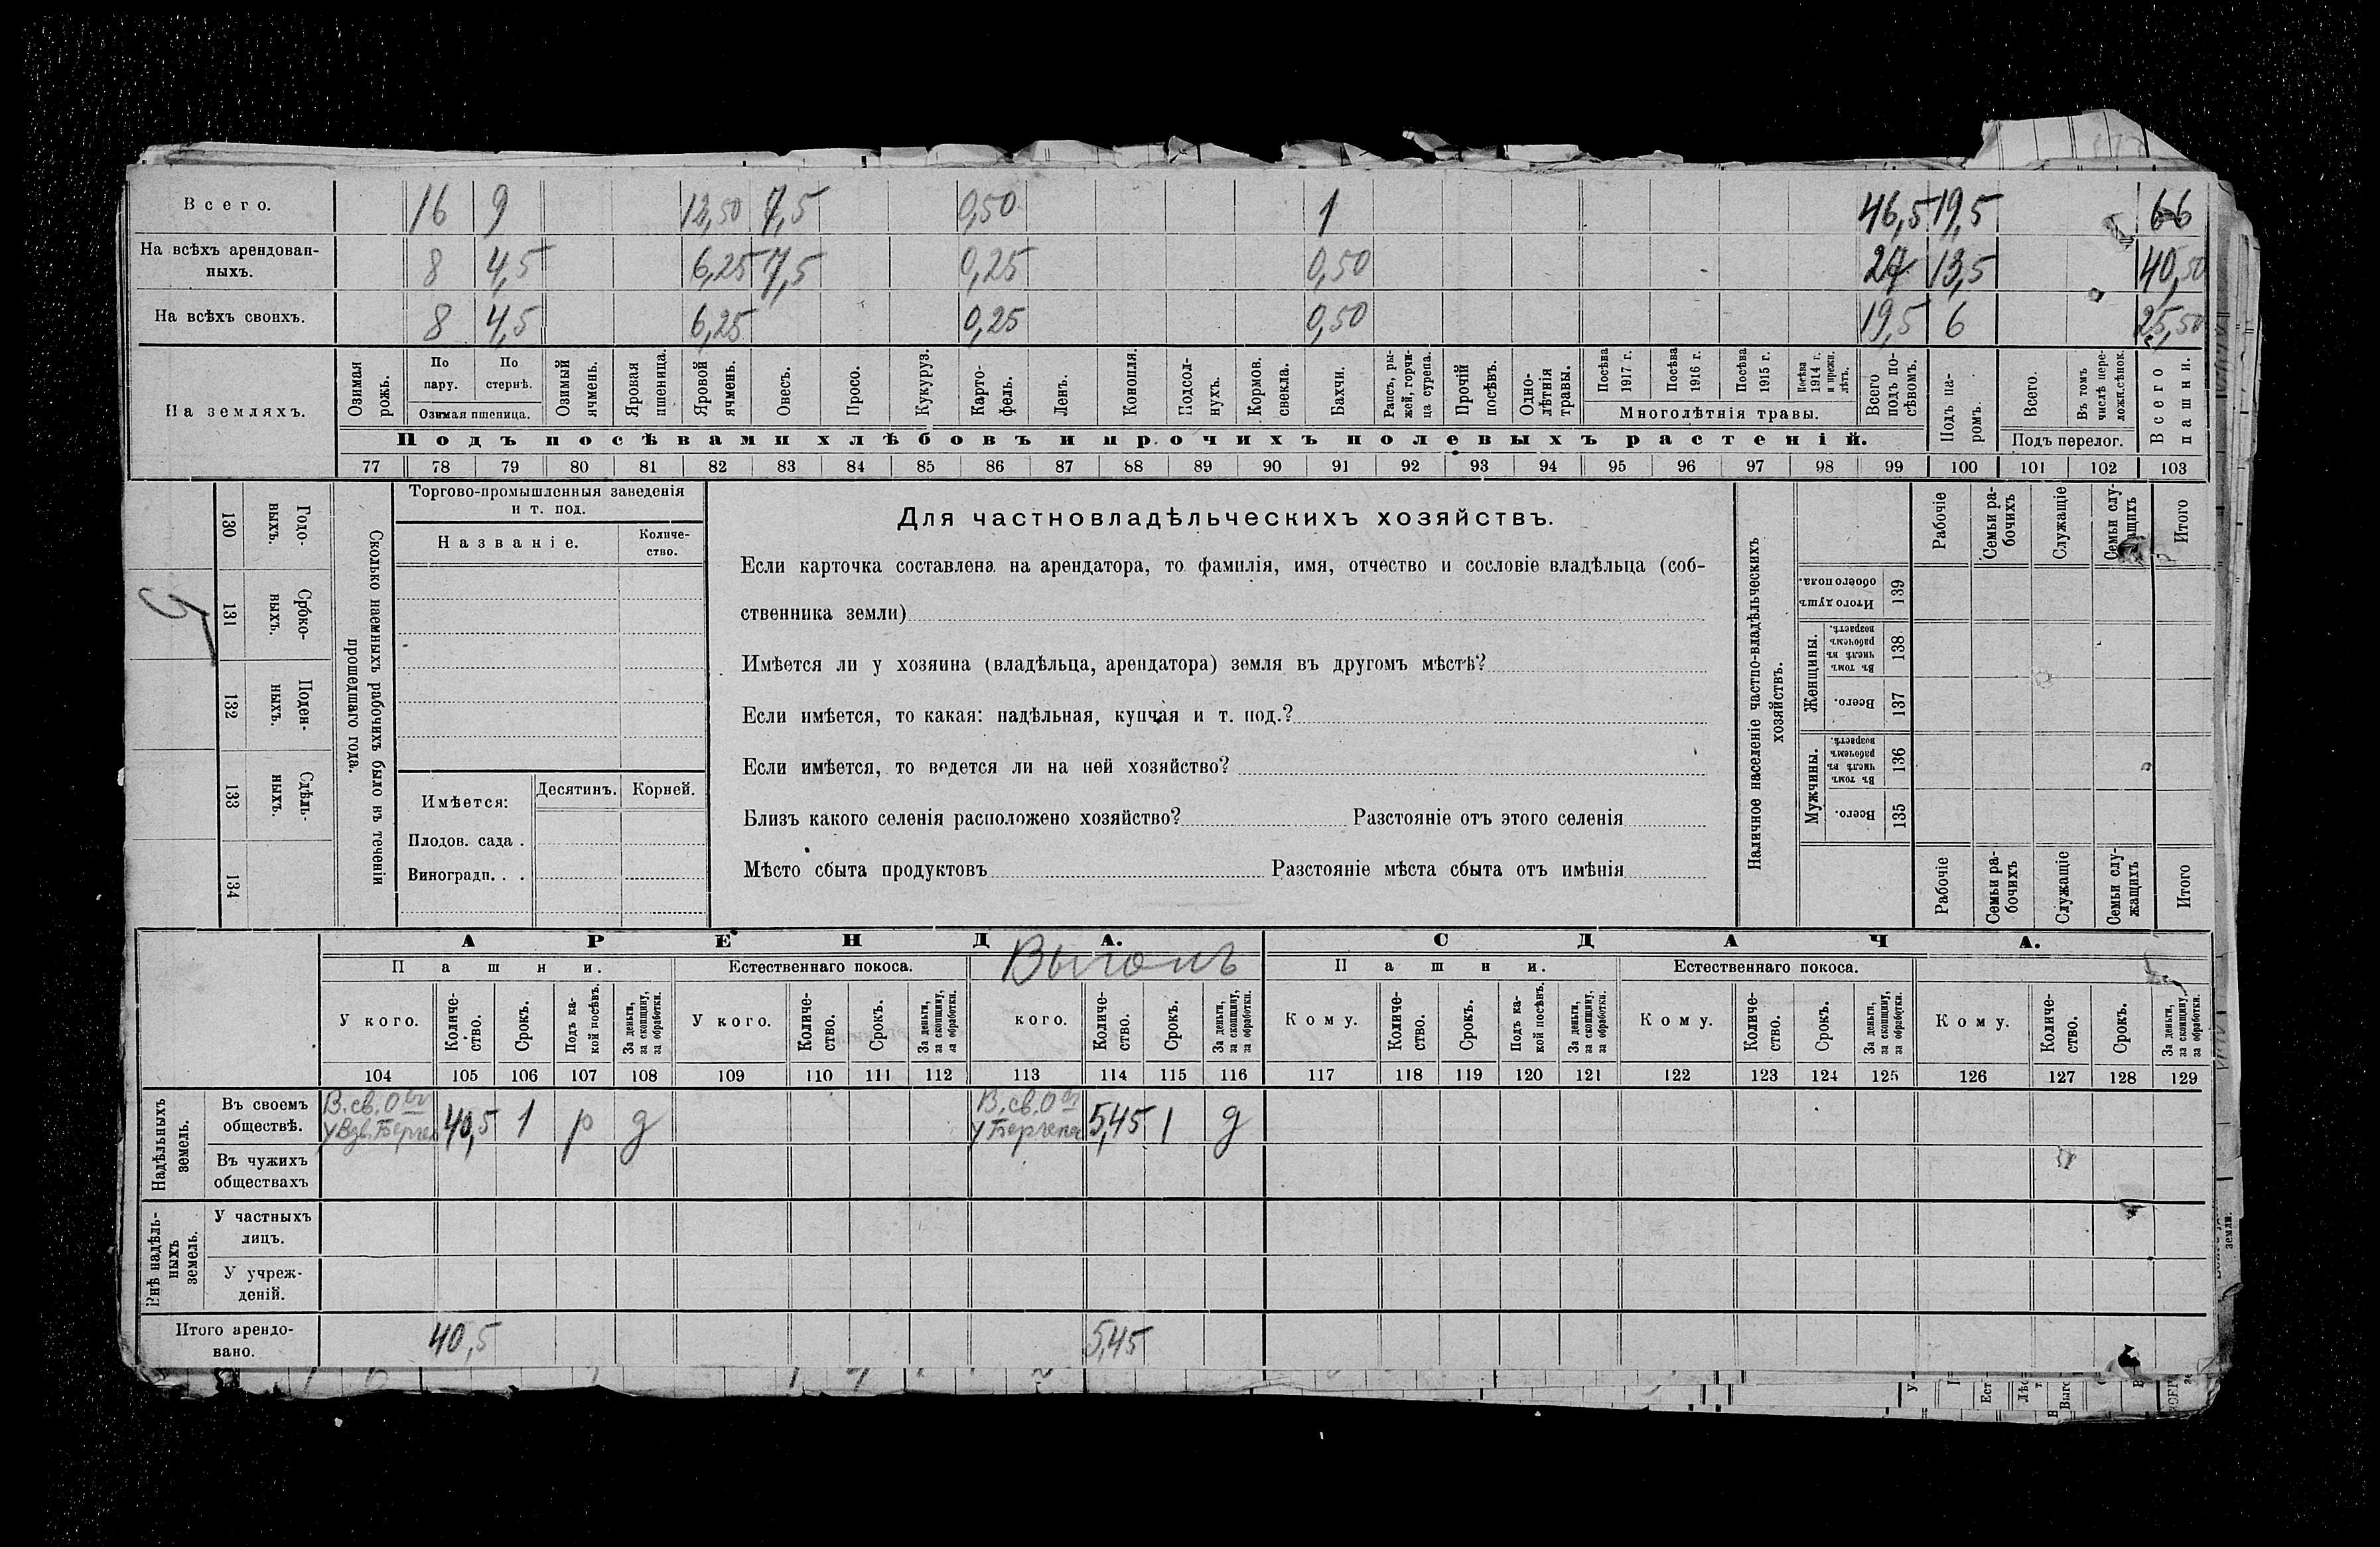 Всего. 16 9 12,50 7,5 0,50 1 46,5 19,5 66
На всѣхъ арендован-
ныхъ. 8 4,5 6,25 7,5 0,25 0,50 27 13,5 40,50
На всѣхъ своихъ. 8 4,5 6,25 0,25 0,50 19,5 6 25,50
На земляхъ.
Озимая рожь.
По пару.
По стернѣ.
Озимая пшеница.
Озимый ячмень.
Яровая пшеница.
Яровой ячмень.
Овесъ.
Просо.
Кукуруз.
Карто-
фель.
Ленъ.
Конопля.
Подсол-
нухъ.
Кормов. свекла.
Бахчи.
Рапсъ, ры-
жей, горчи-
ца сурепа.
Прочій посѣвъ.
Одно-
лѣтнія травы.
Посѣва 1917 г.
Посѣва 1916 г.
Посѣва 1915 г.
Посѣва 1914 г. и прежн. лѣтъ.
Многолѣтнія травы.
Всего подъ по-
сѣвомъ.
Подъ посѣвами хлѣбовъ и прочихъ полевыхъ растеній.
Подъ па-
ромъ.
Всего.
Въ томъ числѣ пере-
ложн.сѣнок.
Подъ перелог.
Всего пашни.
77 78 79 80 81 82 83 84 85 86 87 88 89 90 91 92 93 94 95 96 97 98 99 100 101 102 103
130 Годо-
выхъ.
131 Сроко-
выхъ.
5
132 Поден-
ныхъ.
133 Сдѣль-
ныхъ.
134
Сколько наемныхъ рабочихъ было въ теченіи
прошедшаго года.
Торгово-промышленныя заведенія
и т. под.
Названіе.
Количе-
ство.
Имѣется:
Десятинъ. Корней.
Плодов. сада .
Виноградн. . .
Для частновладѣльческихъ хозяйствъ.
Если карточка составлена на арендатора, то фамилія, имя, отчество и сословіе владѣльца (соб-
ственника земли)
Имѣется ли у хозяина (владѣльца, арендатора) земля въ другомъ мѣстѣ?
Если имѣется, то какая: надѣльная, купчая и т. под.?
Если имѣется, то ведется ли на ней хозяйство?
Близъ какого селенія расположено хозяйство? Разстояніе отъ этого селенія
Мѣсто сбыта продуктовъ Разстояніе мѣста сбыта отъ имѣнія
Наличное населеніе частно-владѣльческихъ
хозяйствъ.
Рабочіе
Семьи ра-
бочихъ
Служащіе
Семьи слу-
жащихъ
Итого
Итого душъ обоего пола. 139
Женщины.
Въ томъ числѣ въ рабочемъ возрастѣ. 138
Всего. 137
Мужчины.
Въ томъ числѣ въ рабочемъ возрастѣ. 136
Всего. 135
Рабочіе
Семьи ра-
бочихъ
Служащіе
Семьи слу-
жащихъ
Итого
АРЕНДА. СДАЧА.
Пашни. Естественнаго покоса. Выгонъ Пашни. Естественнаго покоса.
У кого.
Количе-
ство.
Срокъ.
Подъ ка-
кой посѣвъ.
За деньги,
за скопщину,
за обработки.
У кого.
Количе-
ство.
Срокъ.
За деньги,
за скопщину,
за обработки.
кого.
Количе-
ство.
Срокъ.
За деньги,
за скопщину,
за обработки.
Кому.
Количе-
ство.
Срокъ.
Подъ ка-
кой посѣвъ.
За деньги,
за скопщину,
за обработки.
Кому.
Количе-
ство.
Срокъ.
За деньги,
за скопщину,
за обработки.
Кому.
Количе-
ство.
Срокъ.
За деньги,
за скопщину,
за обработки.
104 105 106 107 108 109 110 111 112 113 114 115 116 117 118 119 120 121 122 123 124 125 126 127 128 129
Надѣльныхъ
земель.
Въ своемъ
обществѣ. В. св. 40,5 1 р д В. св. 5,45 1 д
Въ чужихъ
обществахъ
Внѣ надѣль-
ныхъ
земель.
У частныхъ
лицъ.
У учреж-
деній.
Итого арендо-
вано. 40,5 5,45